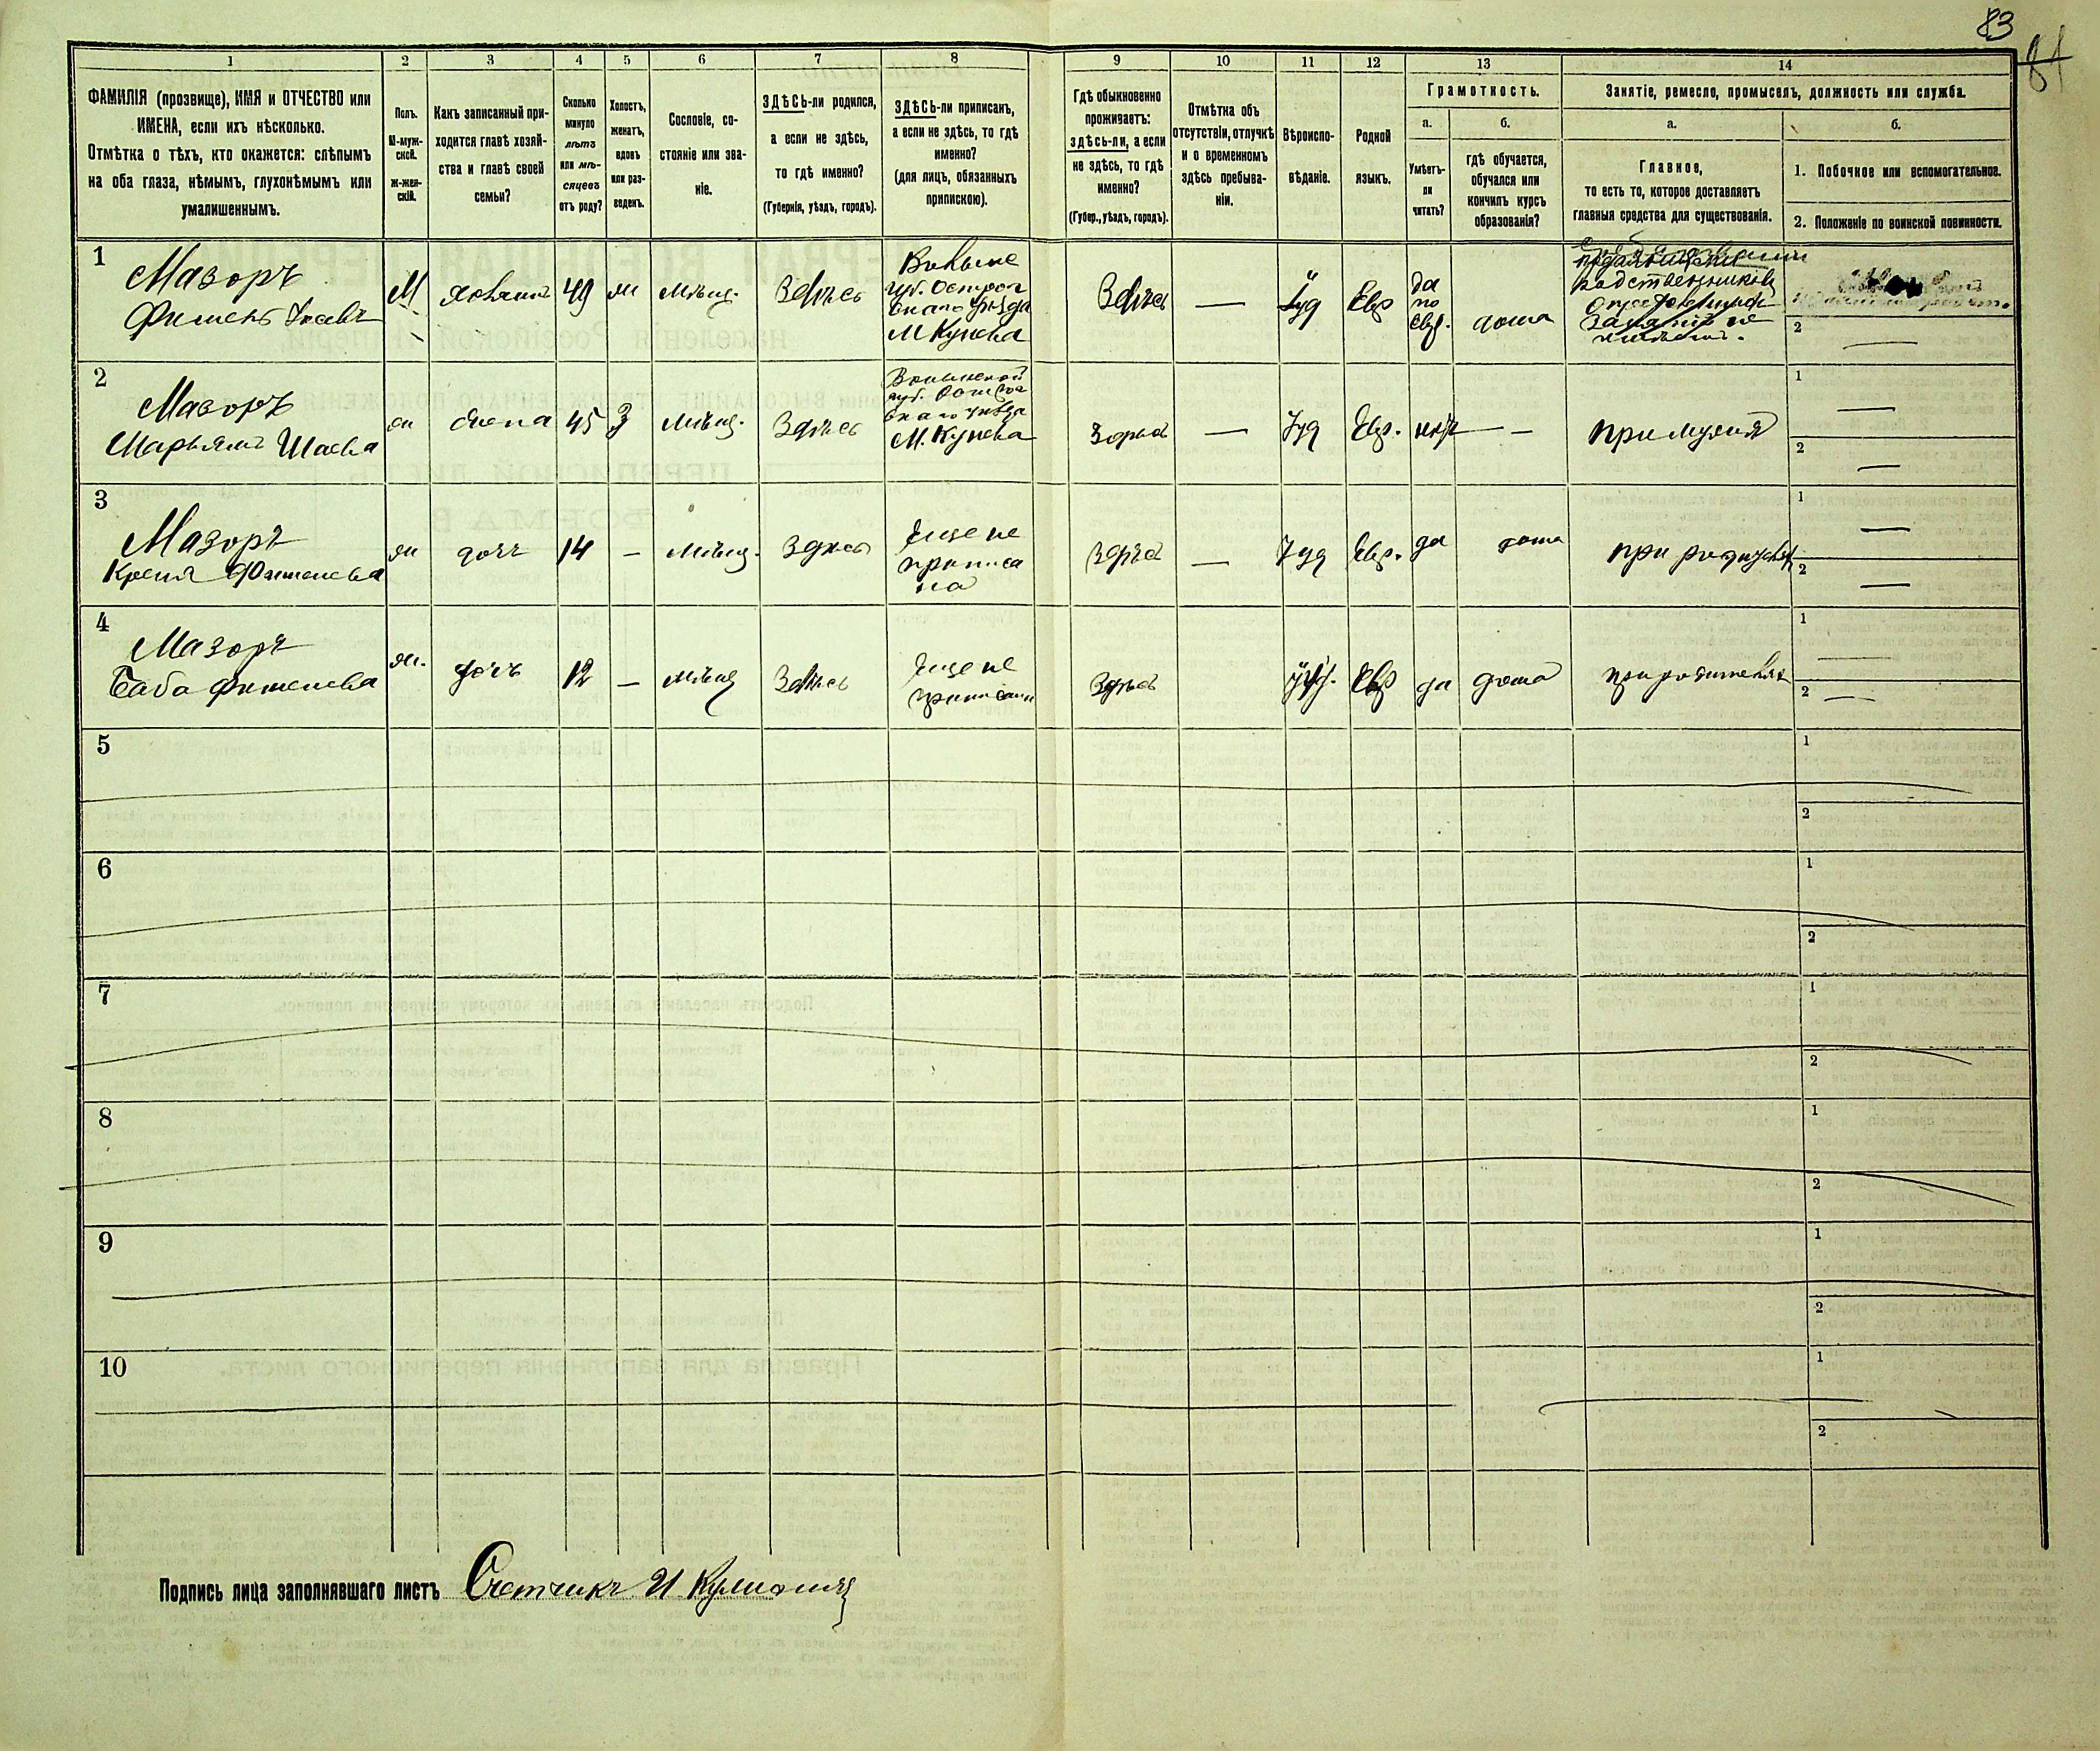 83
81
1 2 3 4 5 6 7 8 9 10 11 12 13 14
ФАМИЛІЯ (прозвище), ИМЯ и ОТЧЕСТВО или
ИМЕНА, если ихъ нѣсколько.
Отмѣтка о тѣхъ, кто окажется: слѣпымъ
на оба глаза, нѣмымъ, глухонѣмымъ или
умалишеннымъ.
Полъ.
М-муж-
ской.
Ж-жен-
скій.
Какъ записанный при-
ходится главѣ хозяй-
ства и главѣ своей
семьи?
Сколько
минуло
лѣтъ
или мѣ-
сяцевъ
отъ роду?
Холостъ,
женатъ,
вдовъ
или раз-
веденъ.
Сословіе, со-
стояніе или зва-
ніе.
ЗДѢСЬ-ли родился,
а если не здѣсь,
то гдѣ именно?
(Губернія, уѣздъ, городъ).
ЗДѢСЬ-ли приписанъ,
а если не здѣсь, то гдѣ
именно?
(для лицъ, обязанныхъ
припискою).
Гдѣ обыкновенно
проживаетъ:
здѣсь-ли, а если
не здѣсь, то гдѣ
именно?
(Губер., уѣздъ, городъ).
Отмѣтка объ
отсутствіи, отлучкѣ
и о временномъ
здѣсь пребыва-
ніи.
Вѣроиспо-
вѣданіе.
Родной
языкъ.
Грамотность.
а.
Умѣетъ-
ли
читать?
б.
гдѣ обучается,
обучался или
кончилъ курсъ
образованія?
Занятіе, ремесло, промыселъ, должность или служба.
а.
Главное,
то есть то, которое доставляетъ
главныя средства для существованія.
б.
1. Побочное или вспомогательное.
2. Положеніе по воинской повинности.
1
Мазоръ
Фишель
М
хозяинъ
49
Мѣщ.
Здѣсь
губ. Острог
скаго уѣзда
М Кунева
Здѣсь
—
Іуд
Евр
да
по
евр.
дома
родственниковъ
занятій не
2
—
2
Мазоръ
Марьямъ Шаева
ж
жена
45
З
Мѣщ.
Здѣсь
Волынской
губ. Острог
скаго уѣзда
М. Кунева
Здѣсь
—
Іуд
Евр.
нѣтъ
—
при мужѣ
1
—
2
—
3
Мазоръ
Фишелева
ж
дочь
14
—
Мѣщ.
Здѣсь
еще не
приписа
на
Здѣсь
—
Іуд
Евр.
да
дома
при родителях
1
—
2
—
4
Мазоръ
Баба Фишелева
ж.
дочь
12
—
Мѣщ
Здѣсь
еще не
Здѣсь
Іуд.
Евр
да
дома
при родителях
1
—
2
—
5
1
2
6
1
2
7
1
2
8
1
2
9
1
2
10
1
2
Подпись лица заполнявшаго листъ Счетчикъ И